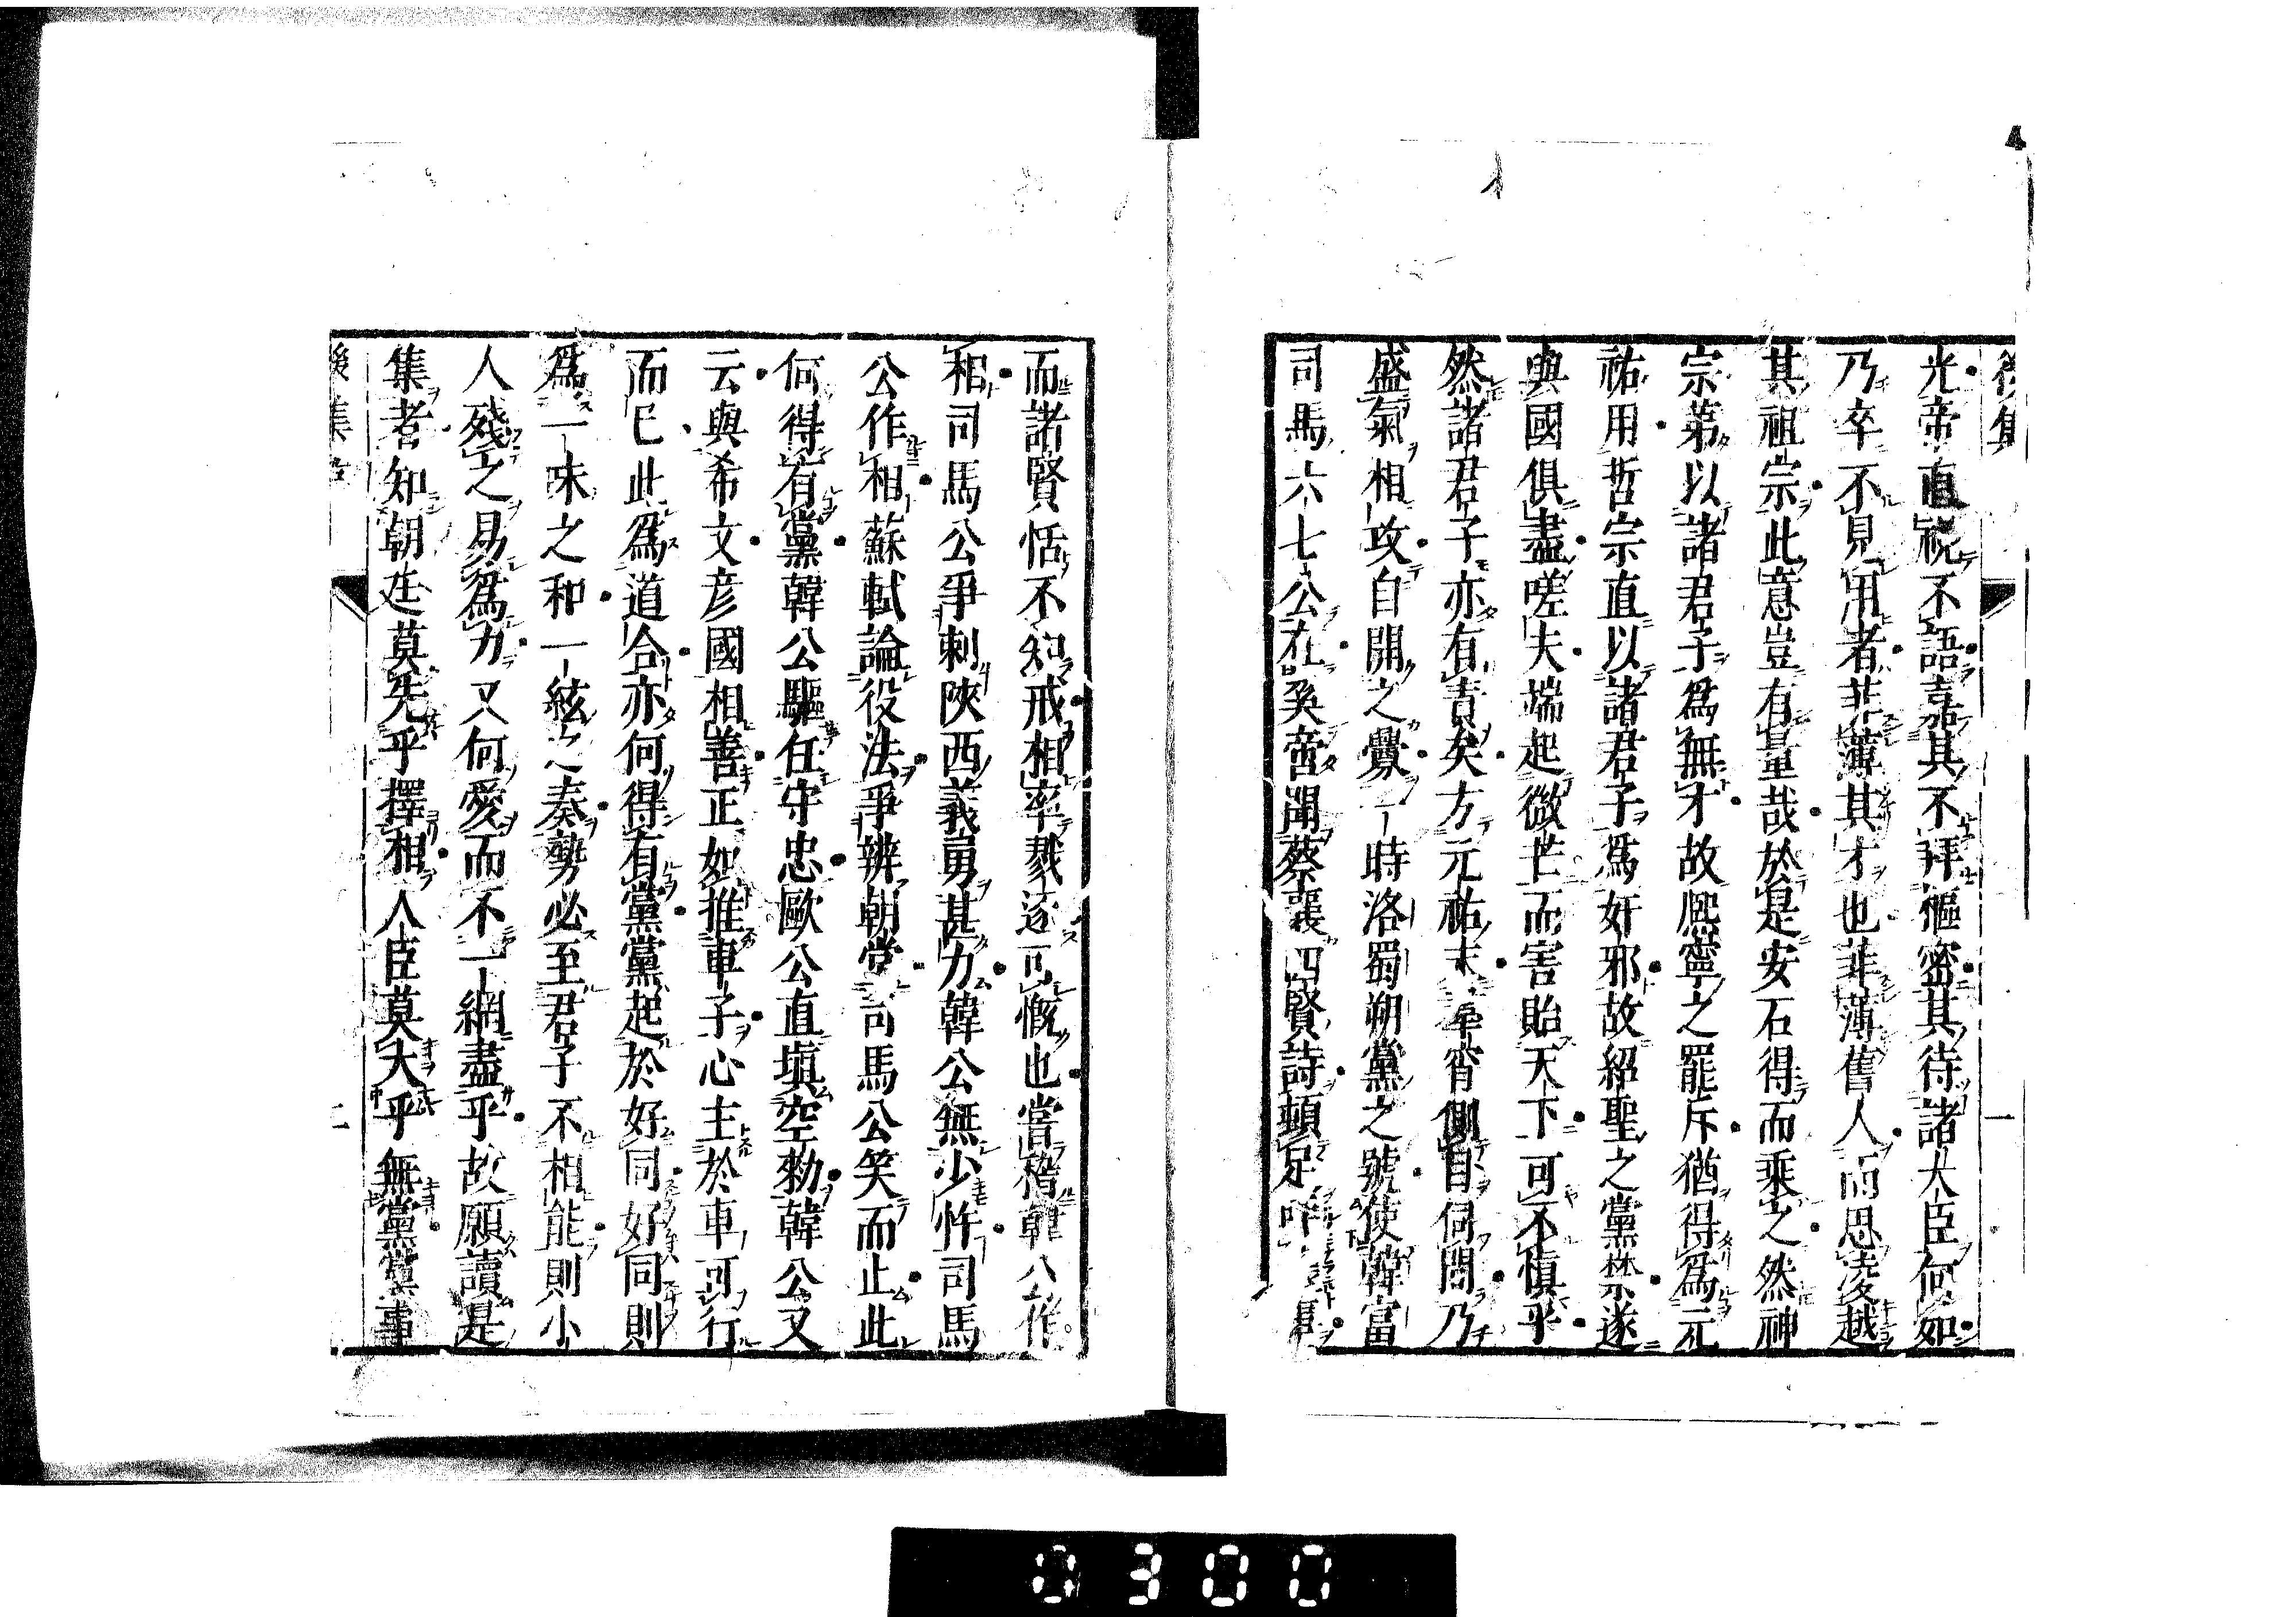 後集
一
光帝直視不語嘉其不拜樞密其待諸大臣何如
乃卒不見用者非薄其才也非薄舊人而思凌越
其祖宗此意豈有量哉於是安石得而乘之然神
宗第以諸君子爲無才故熈寧之罷斥猶得爲元
祐用哲宗直以諸君子爲奸邪故紹聖之黨禁遂
與國俱盡嗟夫端起微芒而害貽天下可不愼乎
然諸君子亦有責矣方元祐末年宵側目伺間乃
盛氣相攻自開之釁一時洛蜀朔黨之號使韓富
司馬六七公在奚啻聞蔡襄四賢詩頓足
而諸賢恬不知戒相率戮逐可慨也當稽韓公作
相司馬公爭刺陝西義勇甚力韓公無少忤司馬
公作相蘇軾論役法爭辨朝堂司馬公笑而止此
何得有黨韓公驅任守忠歐公直塡空勑韓公又
云與希文彦國相善正如推車子心主於車可行
而已此爲道合亦何得有黨黨起於好同好同則
爲一味之和一絃之奏勢必至君子不相能則小
人殘之易爲力又何愛而不一網盡乎故願讀是
集者知朝廷莫先乎擇相人臣莫大乎無黨黨事
後集
二
0300